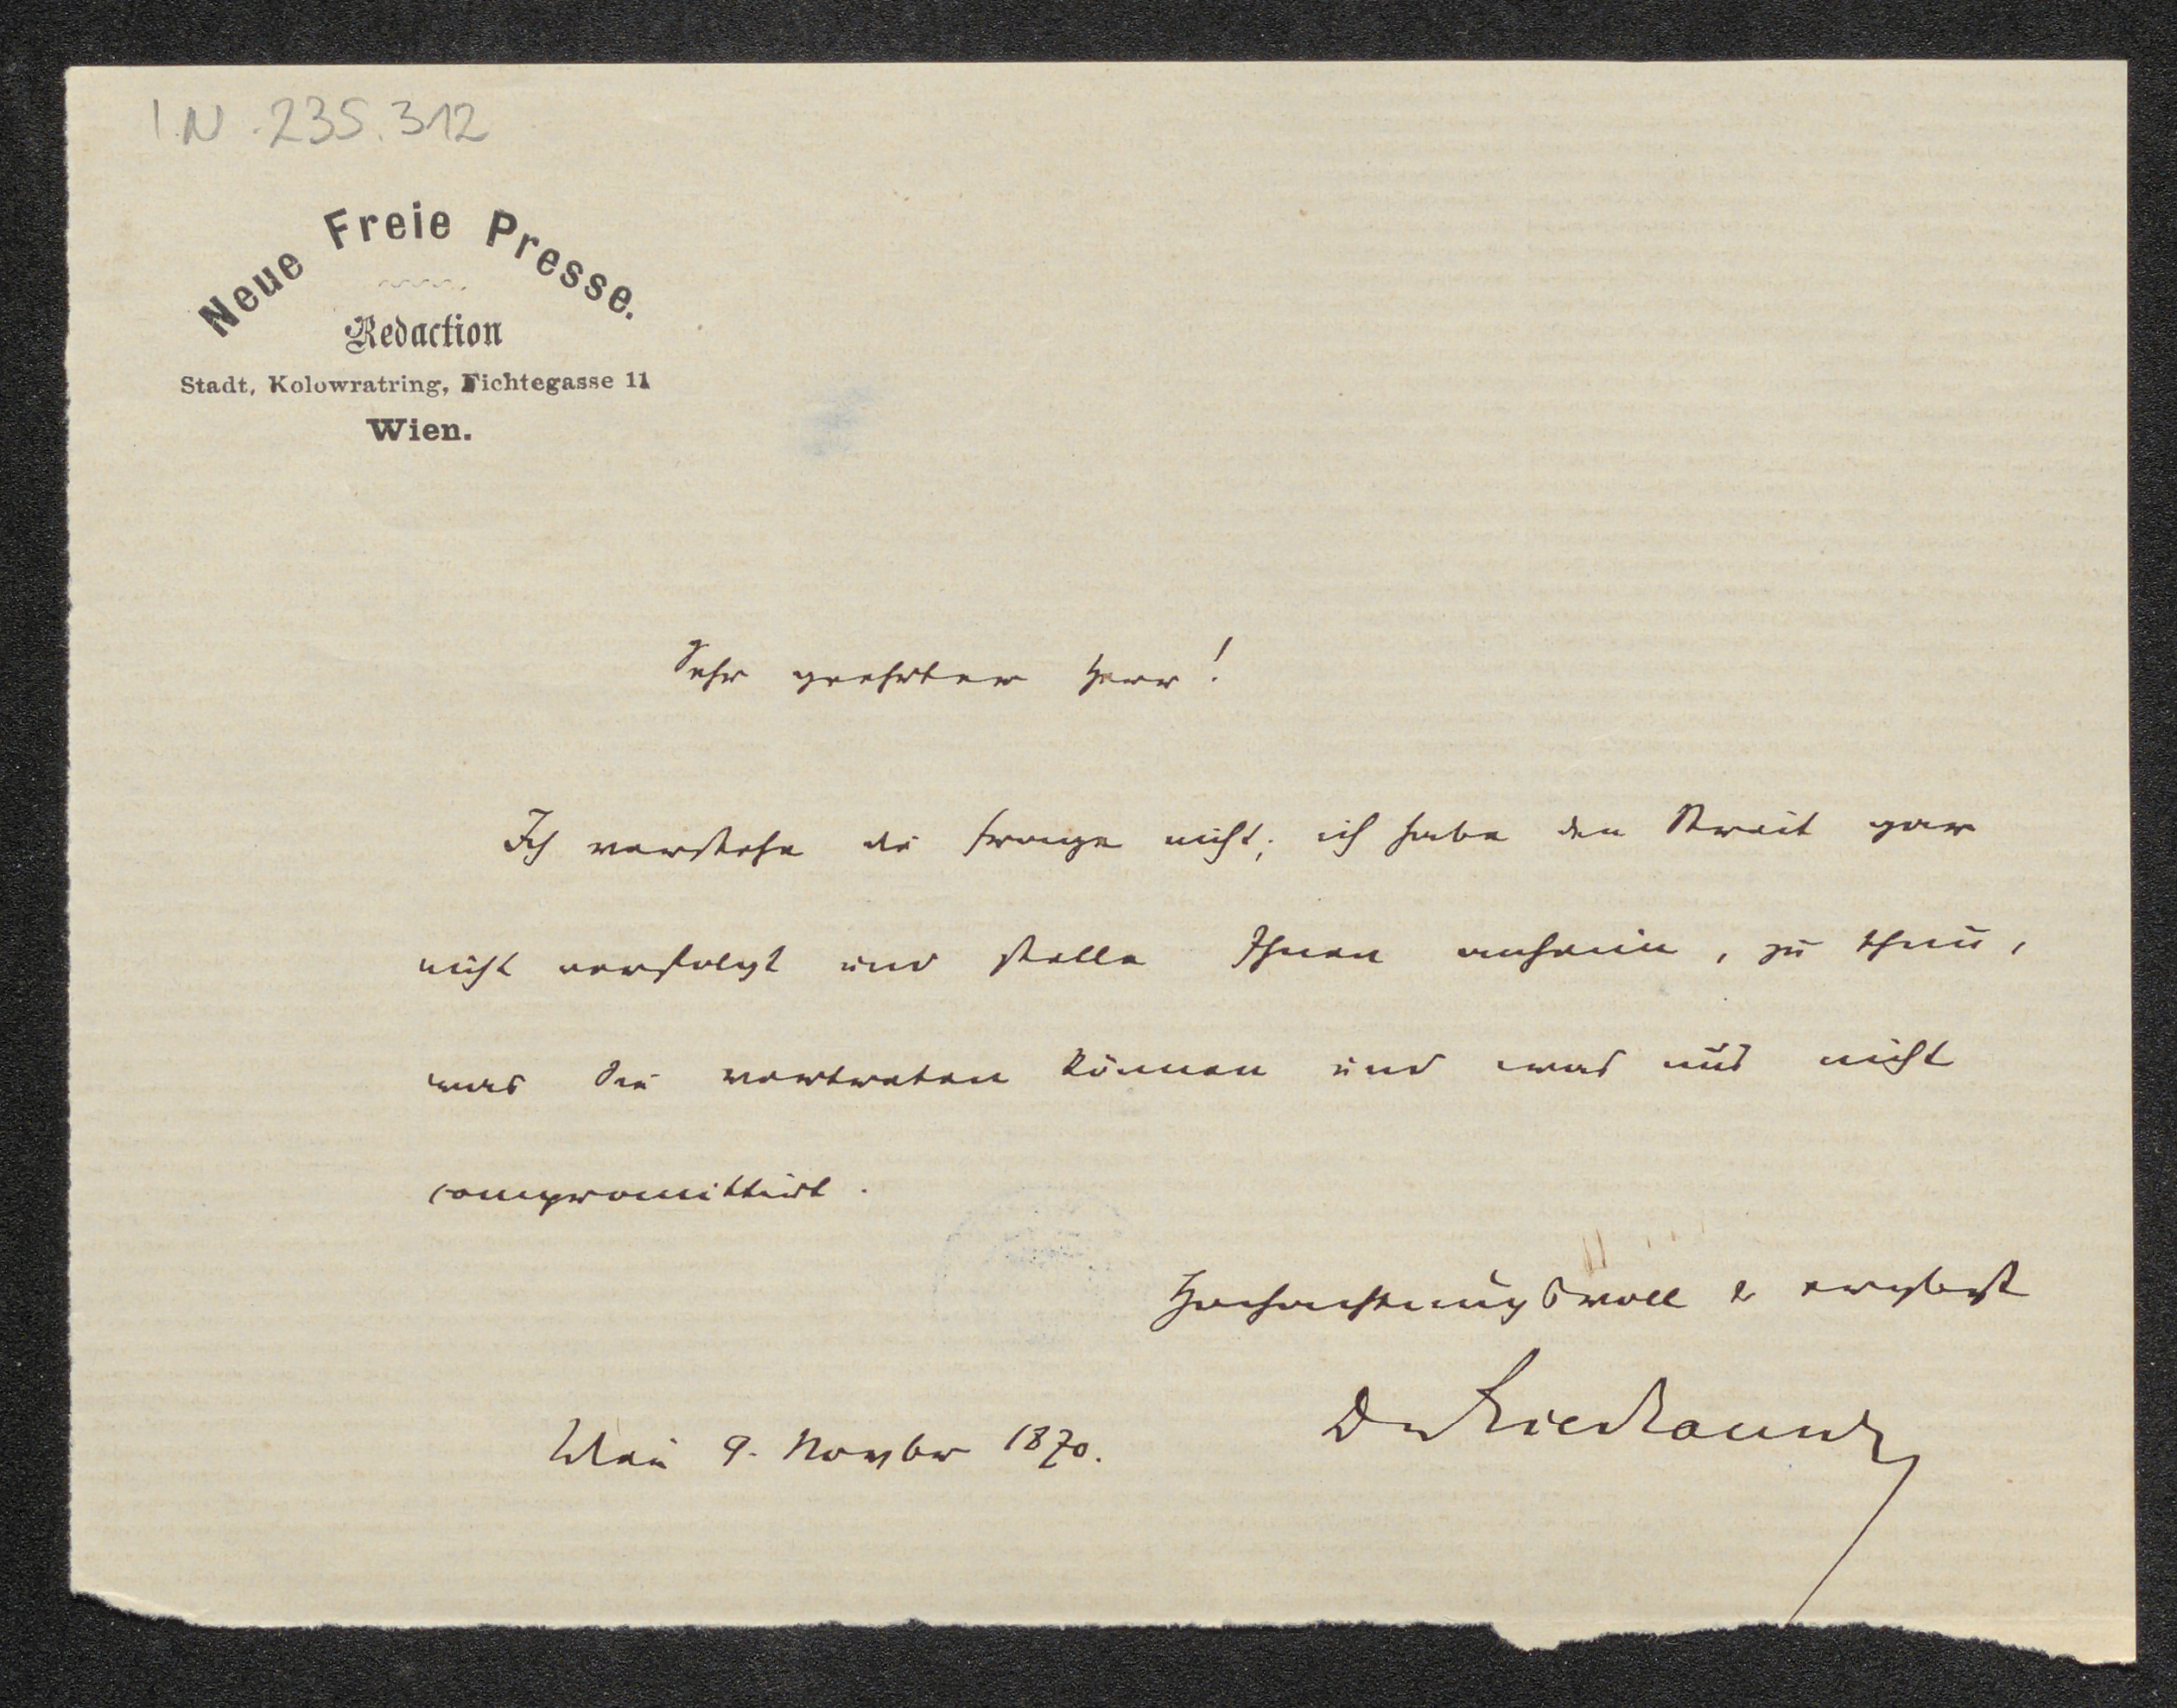 I.N. 235.312
Neue Freie Presse.
Redaction
Stadt, Kolowratring, Fichtegasse 11
Wien.
Sehr geehrter Herr!
Ich verstehe die Frage nicht; ich habe den Streit gar
nicht verfolgt und stelle Ihnen anheim, zu thun,
was Sie vertreten können und was uns nicht
compromittirt.
Hochachtungsvoll & ergebenst
Dr
Wien 9. November 1870.